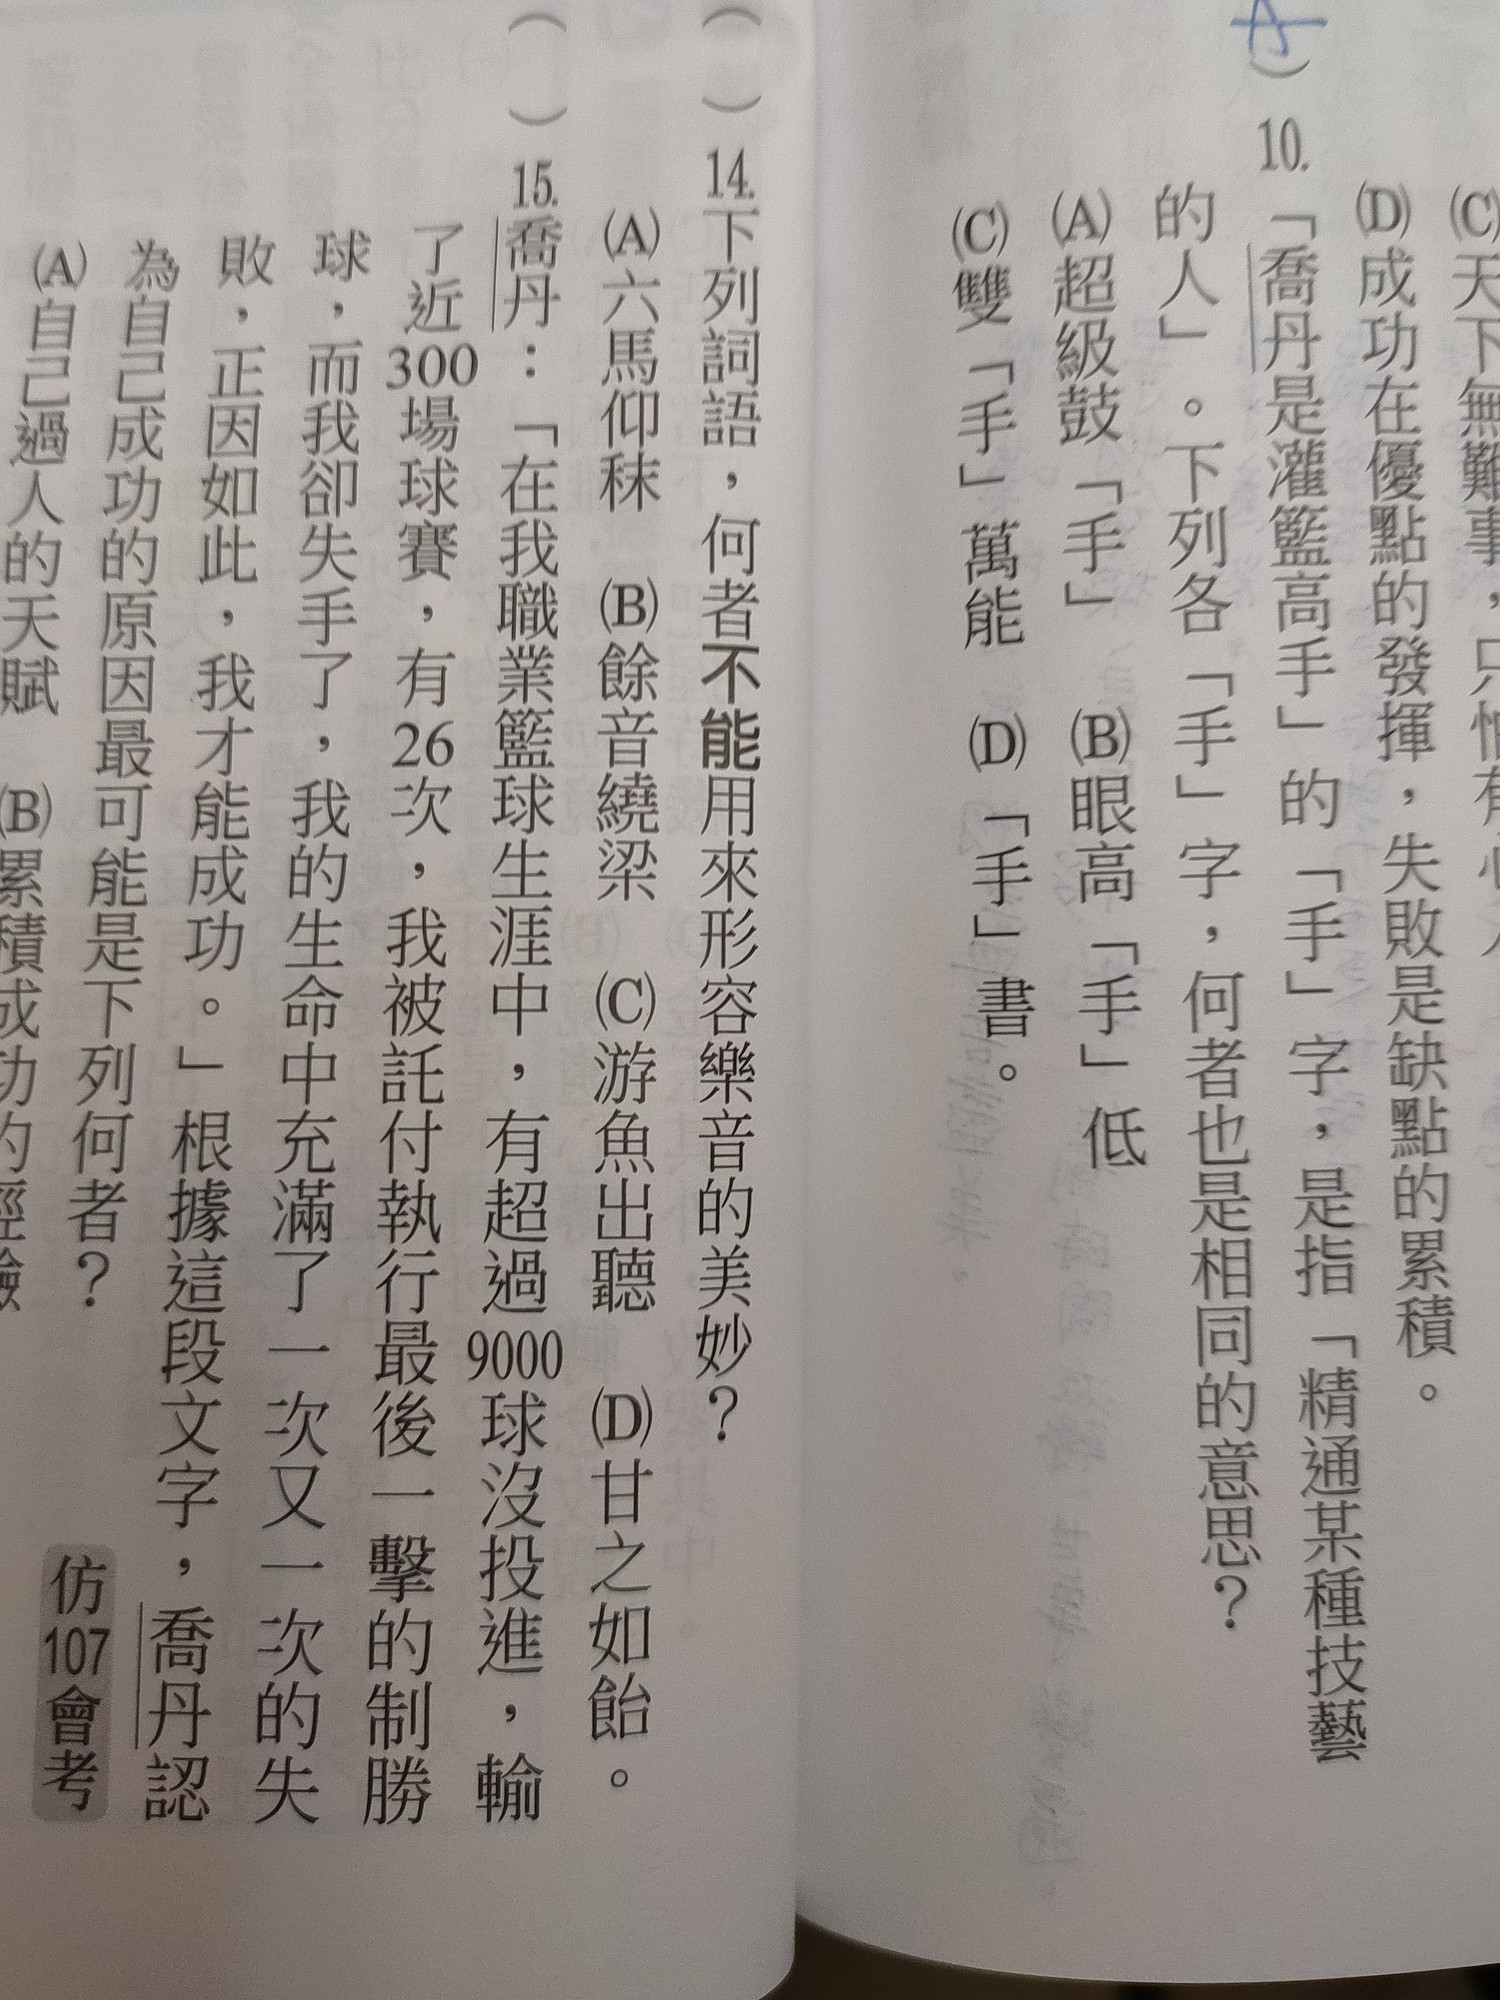 (C)天下無難事，只怕有心人
(D)成功在優點的發揮，失敗是缺點的累積。
A ）10.「喬丹是灌籃高手」的「手」字，是指「精通某種技藝
的人」。下列各「手」字，何者也是相同的意思？
(A)超級鼓「手」 (B)眼高「手」低
(C)雙「手」萬能 (D)「手」書。
（ ）14.下列詞語，何者不能用來形容樂音的美妙？
(A)六馬仰秣 (B)餘音繞梁 (C)游魚出聽 (D)甘之如飴。
（ ）15.喬丹：「在我職業籃球生涯中，有超過9000球沒投進，輸
了近300場球賽，有26次，我被託付執行最後一擊的制勝
球，而我卻失手了，我的生命中充滿了一次又一次的失
敗，正因如此，我才能成功。」根據這段文字，喬丹認
為自己成功的原因最可能是下列何者？ 仿107會考
(A)自己過人的天賦 (B)累積成功的經驗